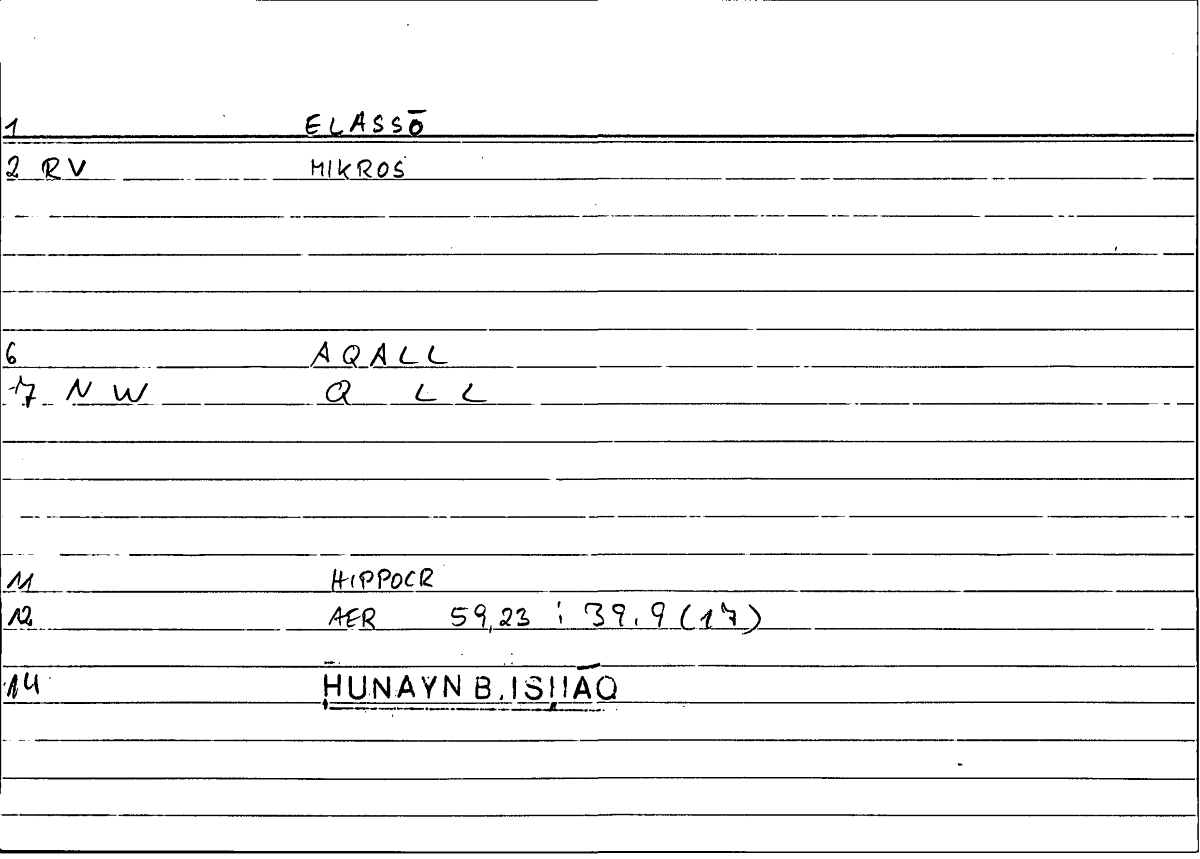 1 ELASSŌ
2 RV MIKROS
6 AQALL
7 NW Q LL
11 HIPPOCR
12 AER 59,23 ; 39.9 (17)
14 ḤUNAYN B. ISḤĀQ